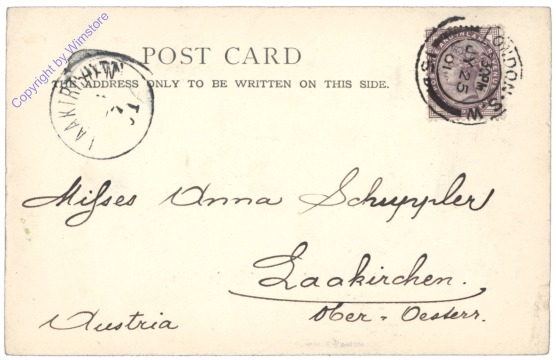 Copyright by Wimstore
POST CARD
THE ADDRESS ONLY TO BE WRITTEN ON THIS SIDE.
LAAKIRCHEN
LONDON.S.W
JY 25
01
Misses Anna Schuppler
Laakirchen.
Ober-Oesterr.
Austria